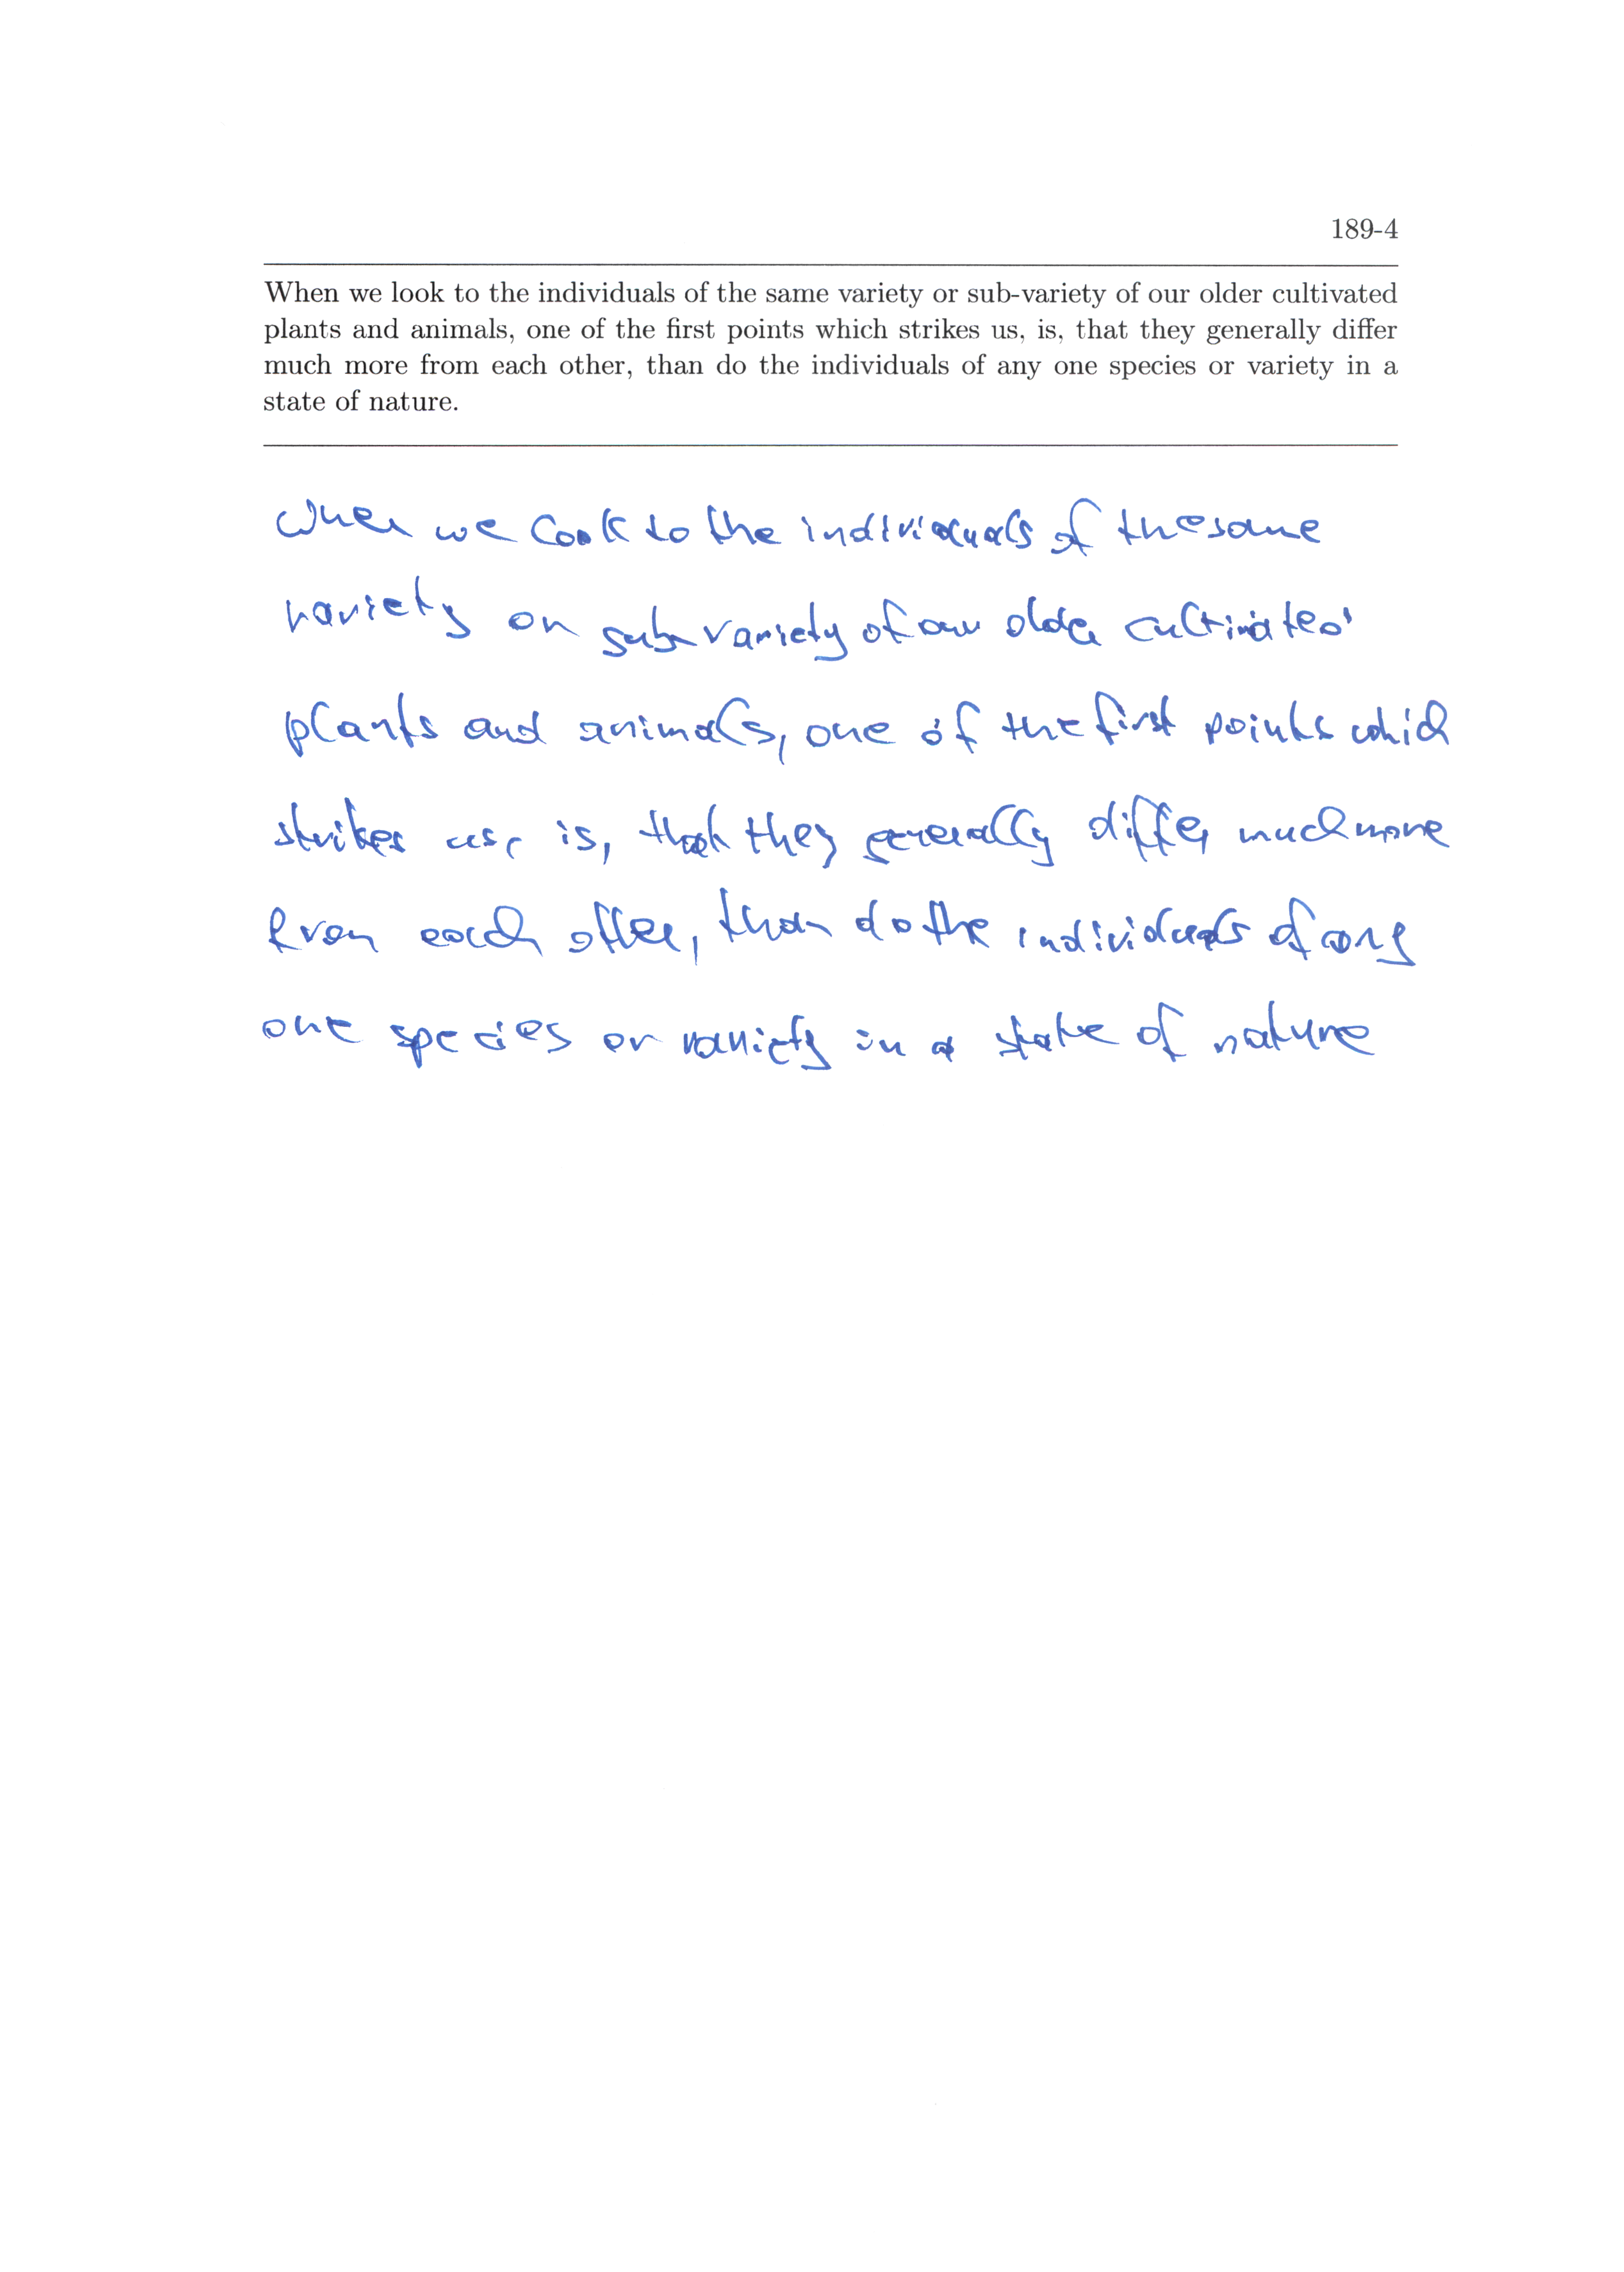 189-4
When we look to the individuals of the same variety or sub-variety of our older cultivated
plants and animals, one of the first points which strikes us, is, that they generally differ
much more from each other, than do the individuals of any one species or variety in a
state of nature.
When we look to the individuals of the same
variety or sub-variety of our older cultivated
plants and animals, one of the first points which
strikes us, is, that they generally differ much more
from each other, than do the individuals of any
one species or variety in a state of nature